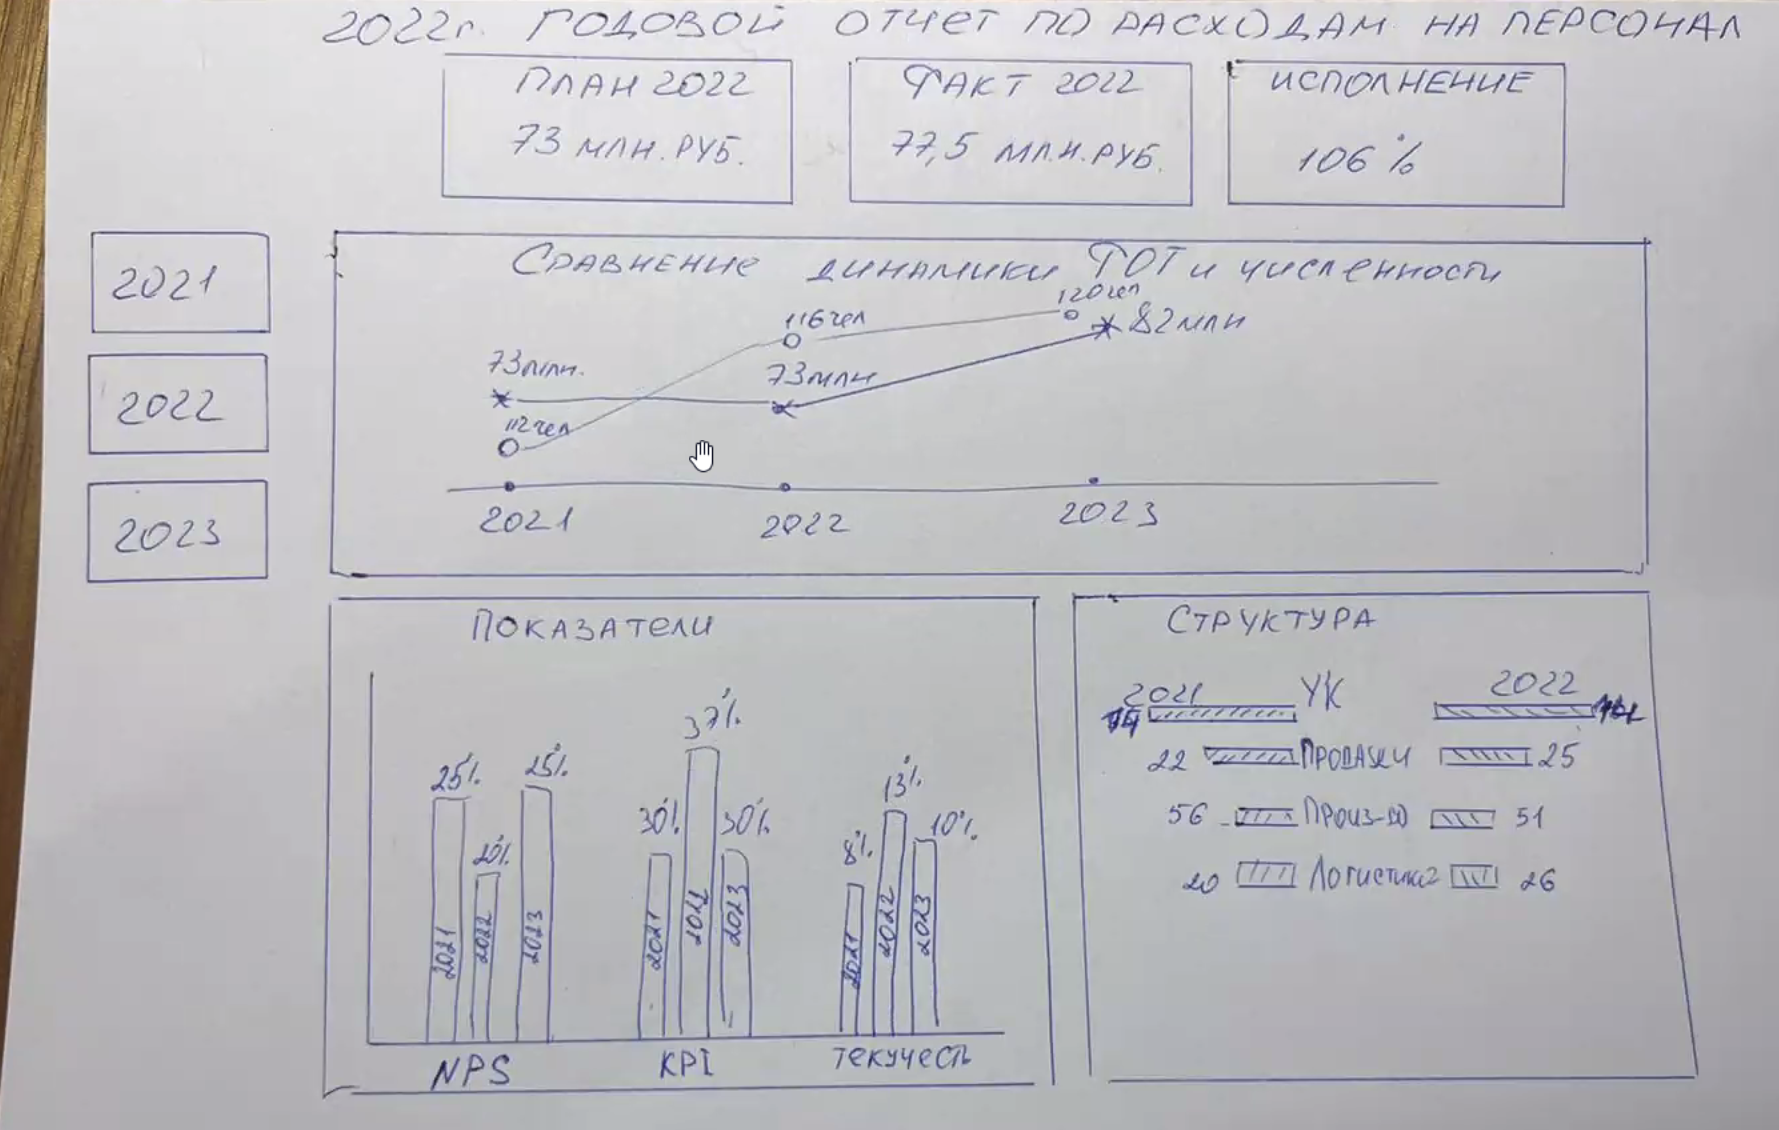 2022г. ГОДОВОЙ ОТЧЕТ ПО РАСХОДАМ НА ПЕРСОНАЛ
ПЛАН 2022
73 МЛН.РУБ.
ФАКТ 2022
77,5 МЛ.Н.РУБ.
ИСПОЛНЕНИЕ
106 %
2021
2022
2023
СРАВНЕНИЕ ДИНАМИКИ ФОТ И ЧИСЛЕННОСТИ
116 чел
120 чел
82 МЛН
73 МЛН.
73 МЛН
112 чел
2021
2022
2023
ПОКАЗАТЕЛИ
25%
20%
25%
30%
37%
30%
8%
13%
10%
2021
2022
2023
2021
2022
2023
2021
2022
2023
NPS
KPI
ТЕКУЧЕСТЬ
СТРУКТУРА
2021 УК 2022
14
22 ПРОДАЖИ 25
56 ПРОИЗ-ВО 51
20 ЛОГИСТИКА 26